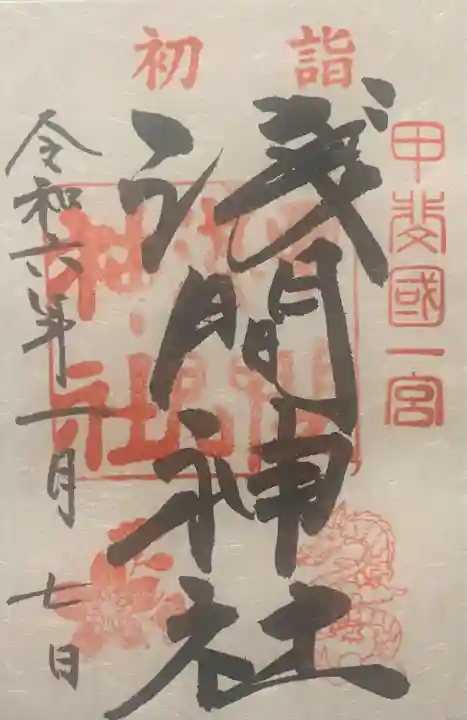 初詣
甲斐國一宮
浅間神社
令和六年一月七日